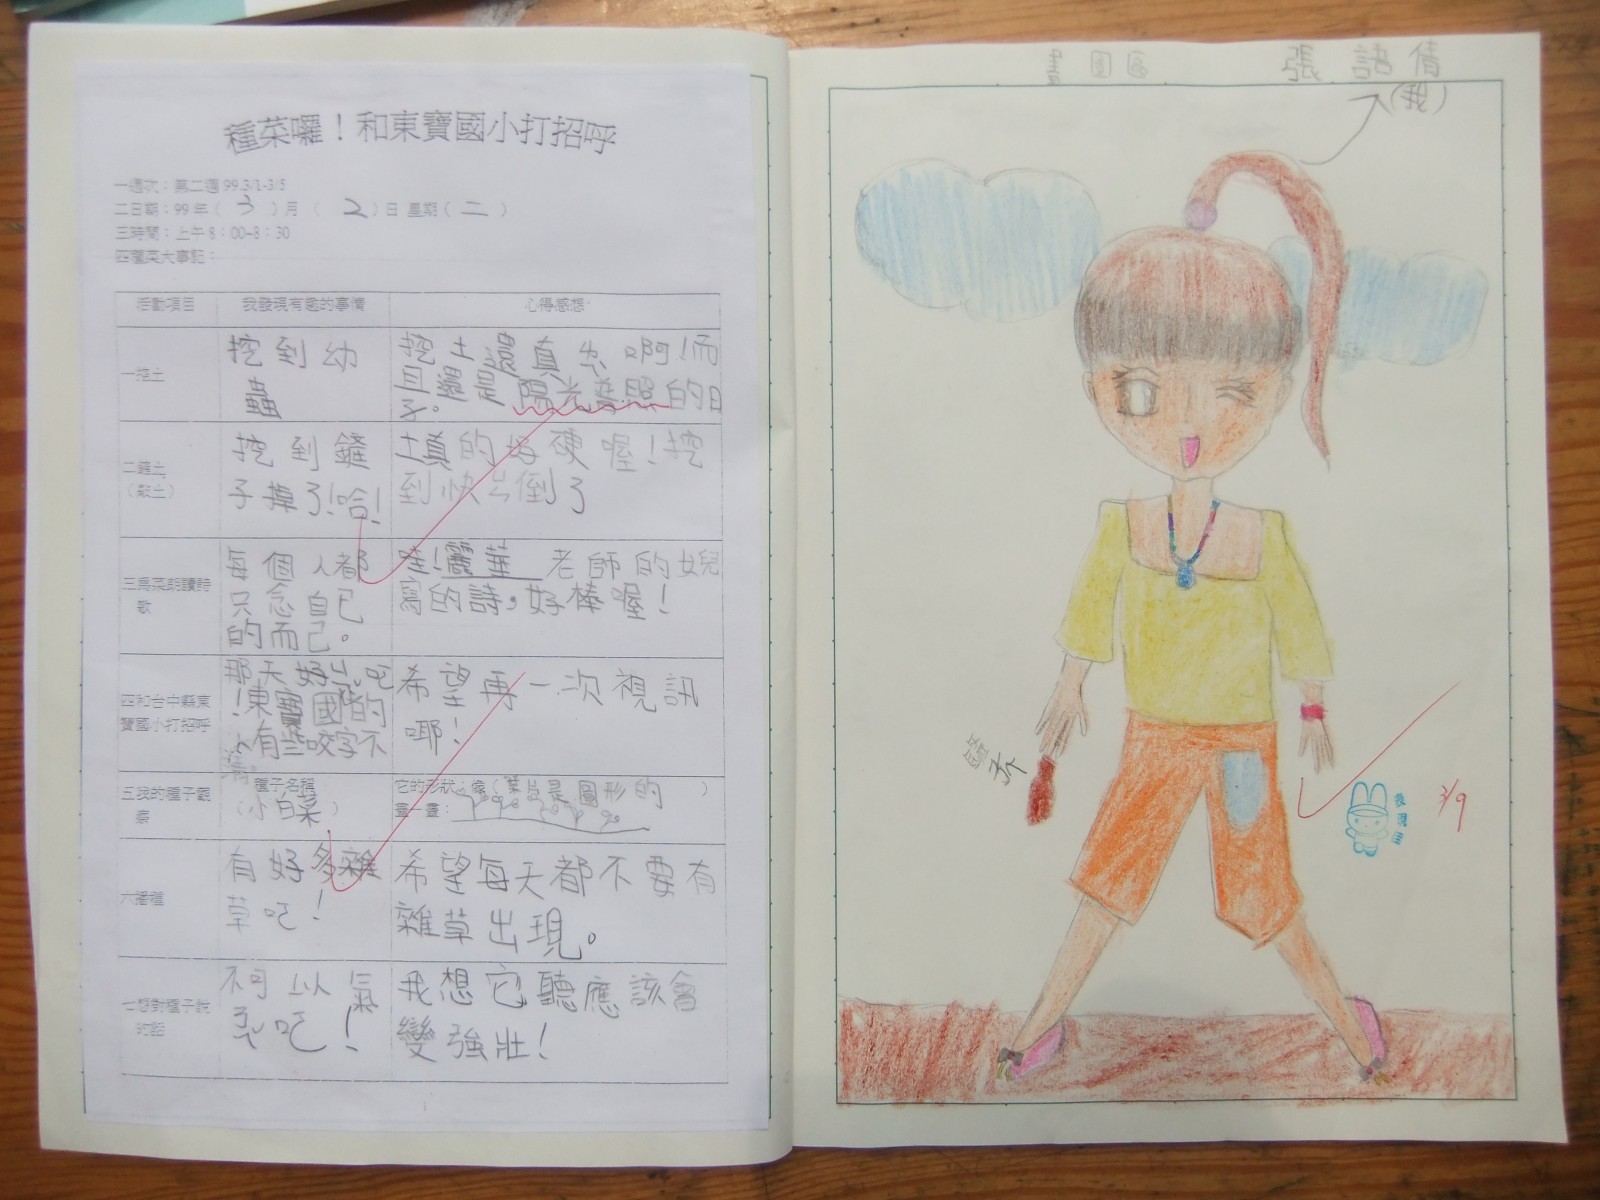 種菜囉！和東寶國小打招呼
一週次：第二週 99.3/1-3/5
二日期：99年( 3 )月( 2 )日 星期( 二 )
三時間：上午8：00-8：30
四種菜大事記：
活動項目 我發現有趣的事情 心得感想:
一挖土
挖到幼
蟲
挖土還真 啊!而
且還是陽光普照的日
子。
二鏟土
(鬆土)
挖到鏟
子掉了!哈!
土真的好硬喔!挖
到快 倒了
三為菜朗讀詩
歌
每個人都
只念自己
的而已。
哇!麗華 老師的
寫的詩,好棒喔!
四和台中縣東
寶國小打招呼
那天好 吧
!東寶國小的
人有些咬字不
清。
希望再一次視訊
耶!
五我的種子觀
察
種子名稱
(小白菜)
它的形狀：像(葉片是圓形的 )
畫一畫：
六播種
有好多雜
草吧!
希望每天都不要有
雜草出現。
七想對種子說
的話
不可以氣
吧!
我想它聽應該會
變強壯!
1
畫圖區 張 倩
(我)
3/9